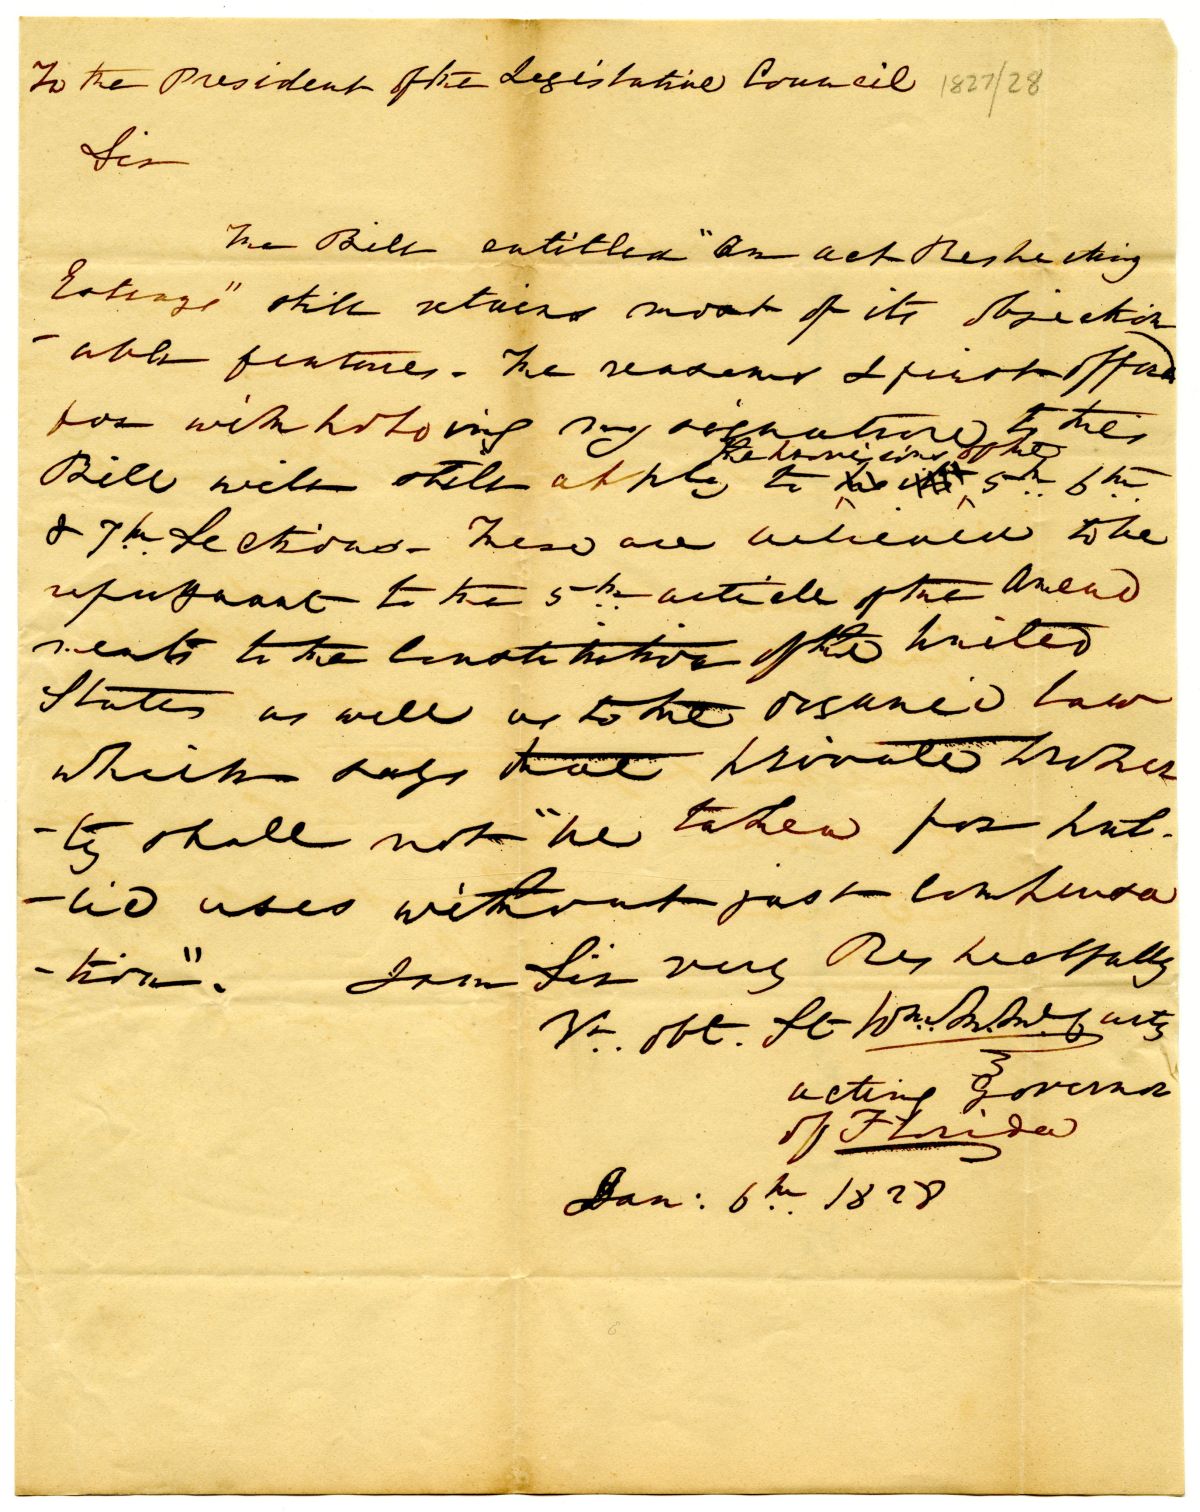 To the President of the Legislative Council 1827/28
Sir
The Bill entitled "An act Respecting
Estrays" still retains most of its objection
-able features. The reasons I first offered
for withholding my signature to this
the provisions of the
Bill will still apply to 5th 6th
& 7th Sections. These are believed to be
repugnant to the 5th article of the Amend
ments to the Constitution of the United
States as well as to the organic law
which says that private proper
-ty shall not "be taken for pub-
-lic uses without just compensa
-tion". I am Sir very Respectfully
Yr. obt. St Wm. M. McCarty
acting Governor
of Florida
Jan: 6th 1828